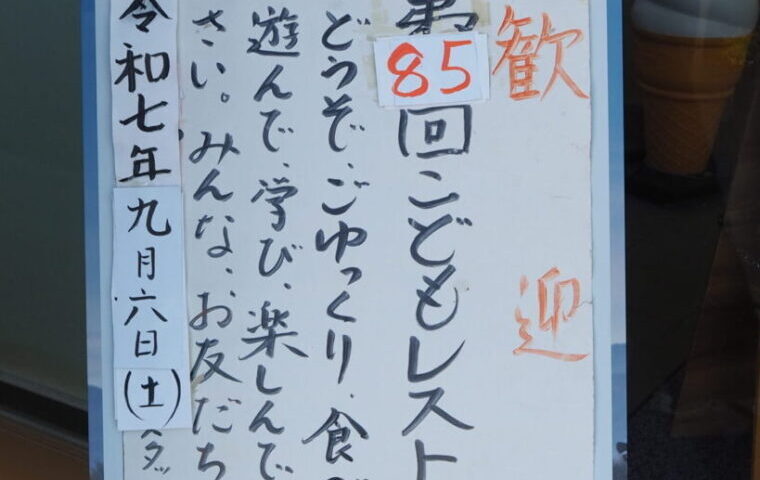 歓迎
第85回こどもレスト
どうぞ、ごゆっくり、食べ
遊んで、学び、楽しんで
さい。みんな、お友だち
令和七年九月六日(土)